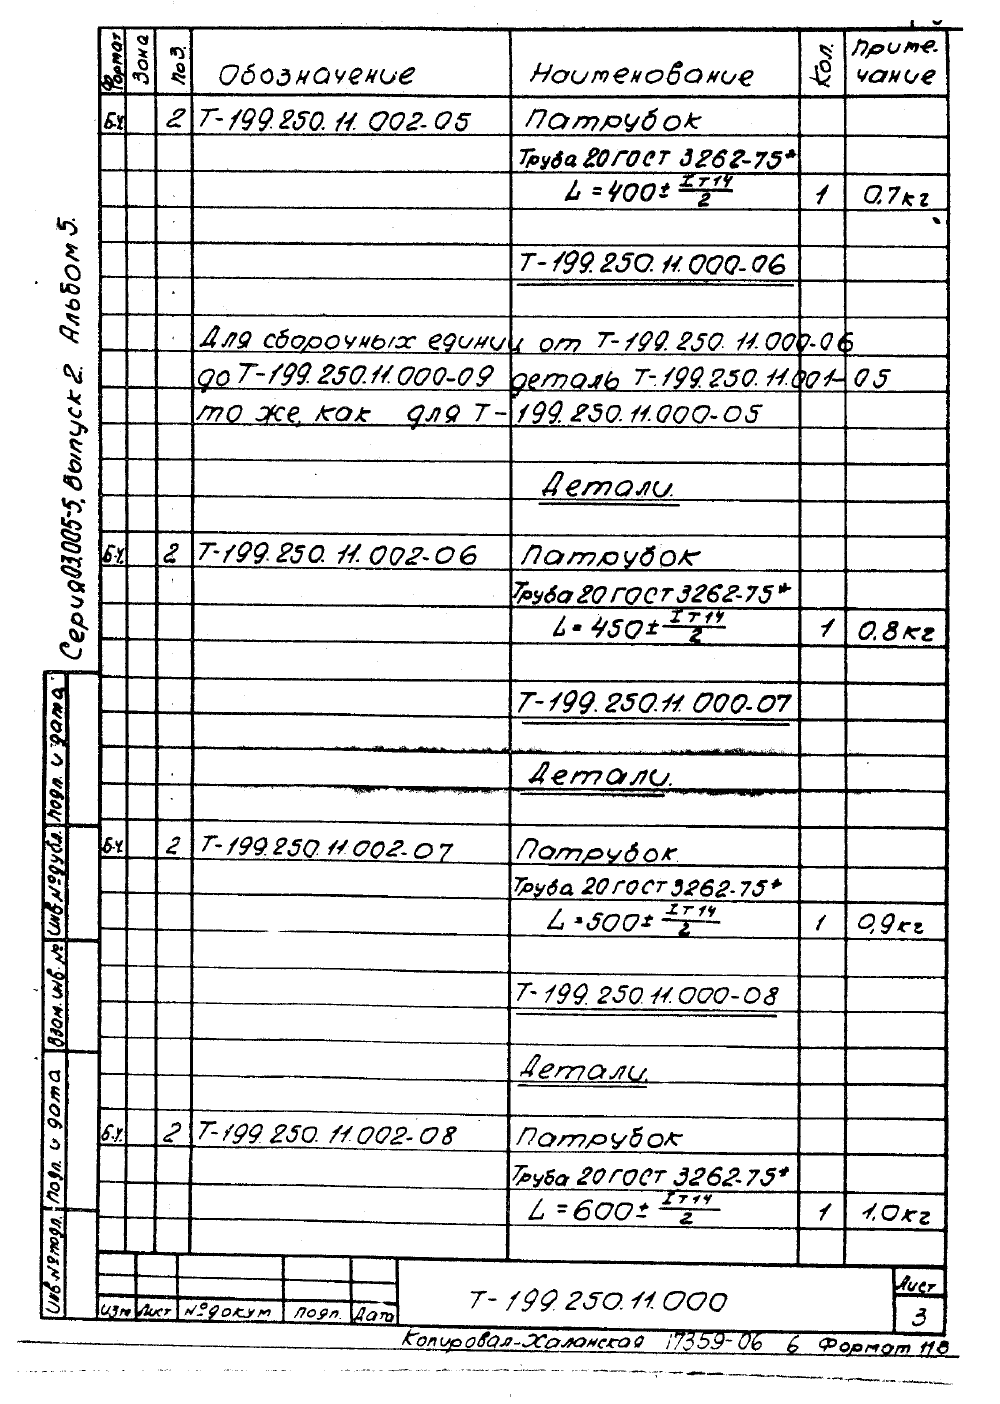 Формат Зона Поз. Обозначение Наименование Кол. Приме-
чание
Б.ч. 2 Т-199.250.11.002-05 Патрубок
Труба 20 ГОСТ 3262-75*
L=400± IТ14/2 1 0.7кг
Т-199.250.11.000-06
Для сборочных единиц от Т-199.250.11.000-06
до Т-199.250.11.000-09 деталь Т-199.250.11.001-05
то же, как для Т-199.250.11.000-05
Детали.
Б.ч. 2 Т-199.250.11.002-06 Патрубок
Труба 20 ГОСТ 3262-75*
L=450± IТ14/2 1 0.8кг
Т-199.250.11.000-07
Детали.
Б.ч. 2 Т-199.250.11.002-07 Патрубок
Труба 20 ГОСТ 3262-75*
L=500± IТ14/2 1 0,9кг
Т-199.250.11.000-08
Детали.
Б.ч. 2 Т-199.250.11.002-08 Патрубок
Труба 20 ГОСТ 3262-75*
L=600± IТ14/2 1 1.0кг
Серия 03.005-5, Выпуск 2. Альбом 5.
Инв.№ подл. Подп. и дата Взам.инв.№ Инв.№ дубл. Подп. и дата
Изм Лист № докум Подп. Дата
Т-199.250.11.000
Лист
3
Копировал-Халанская 17359-06 6 Формат 11В